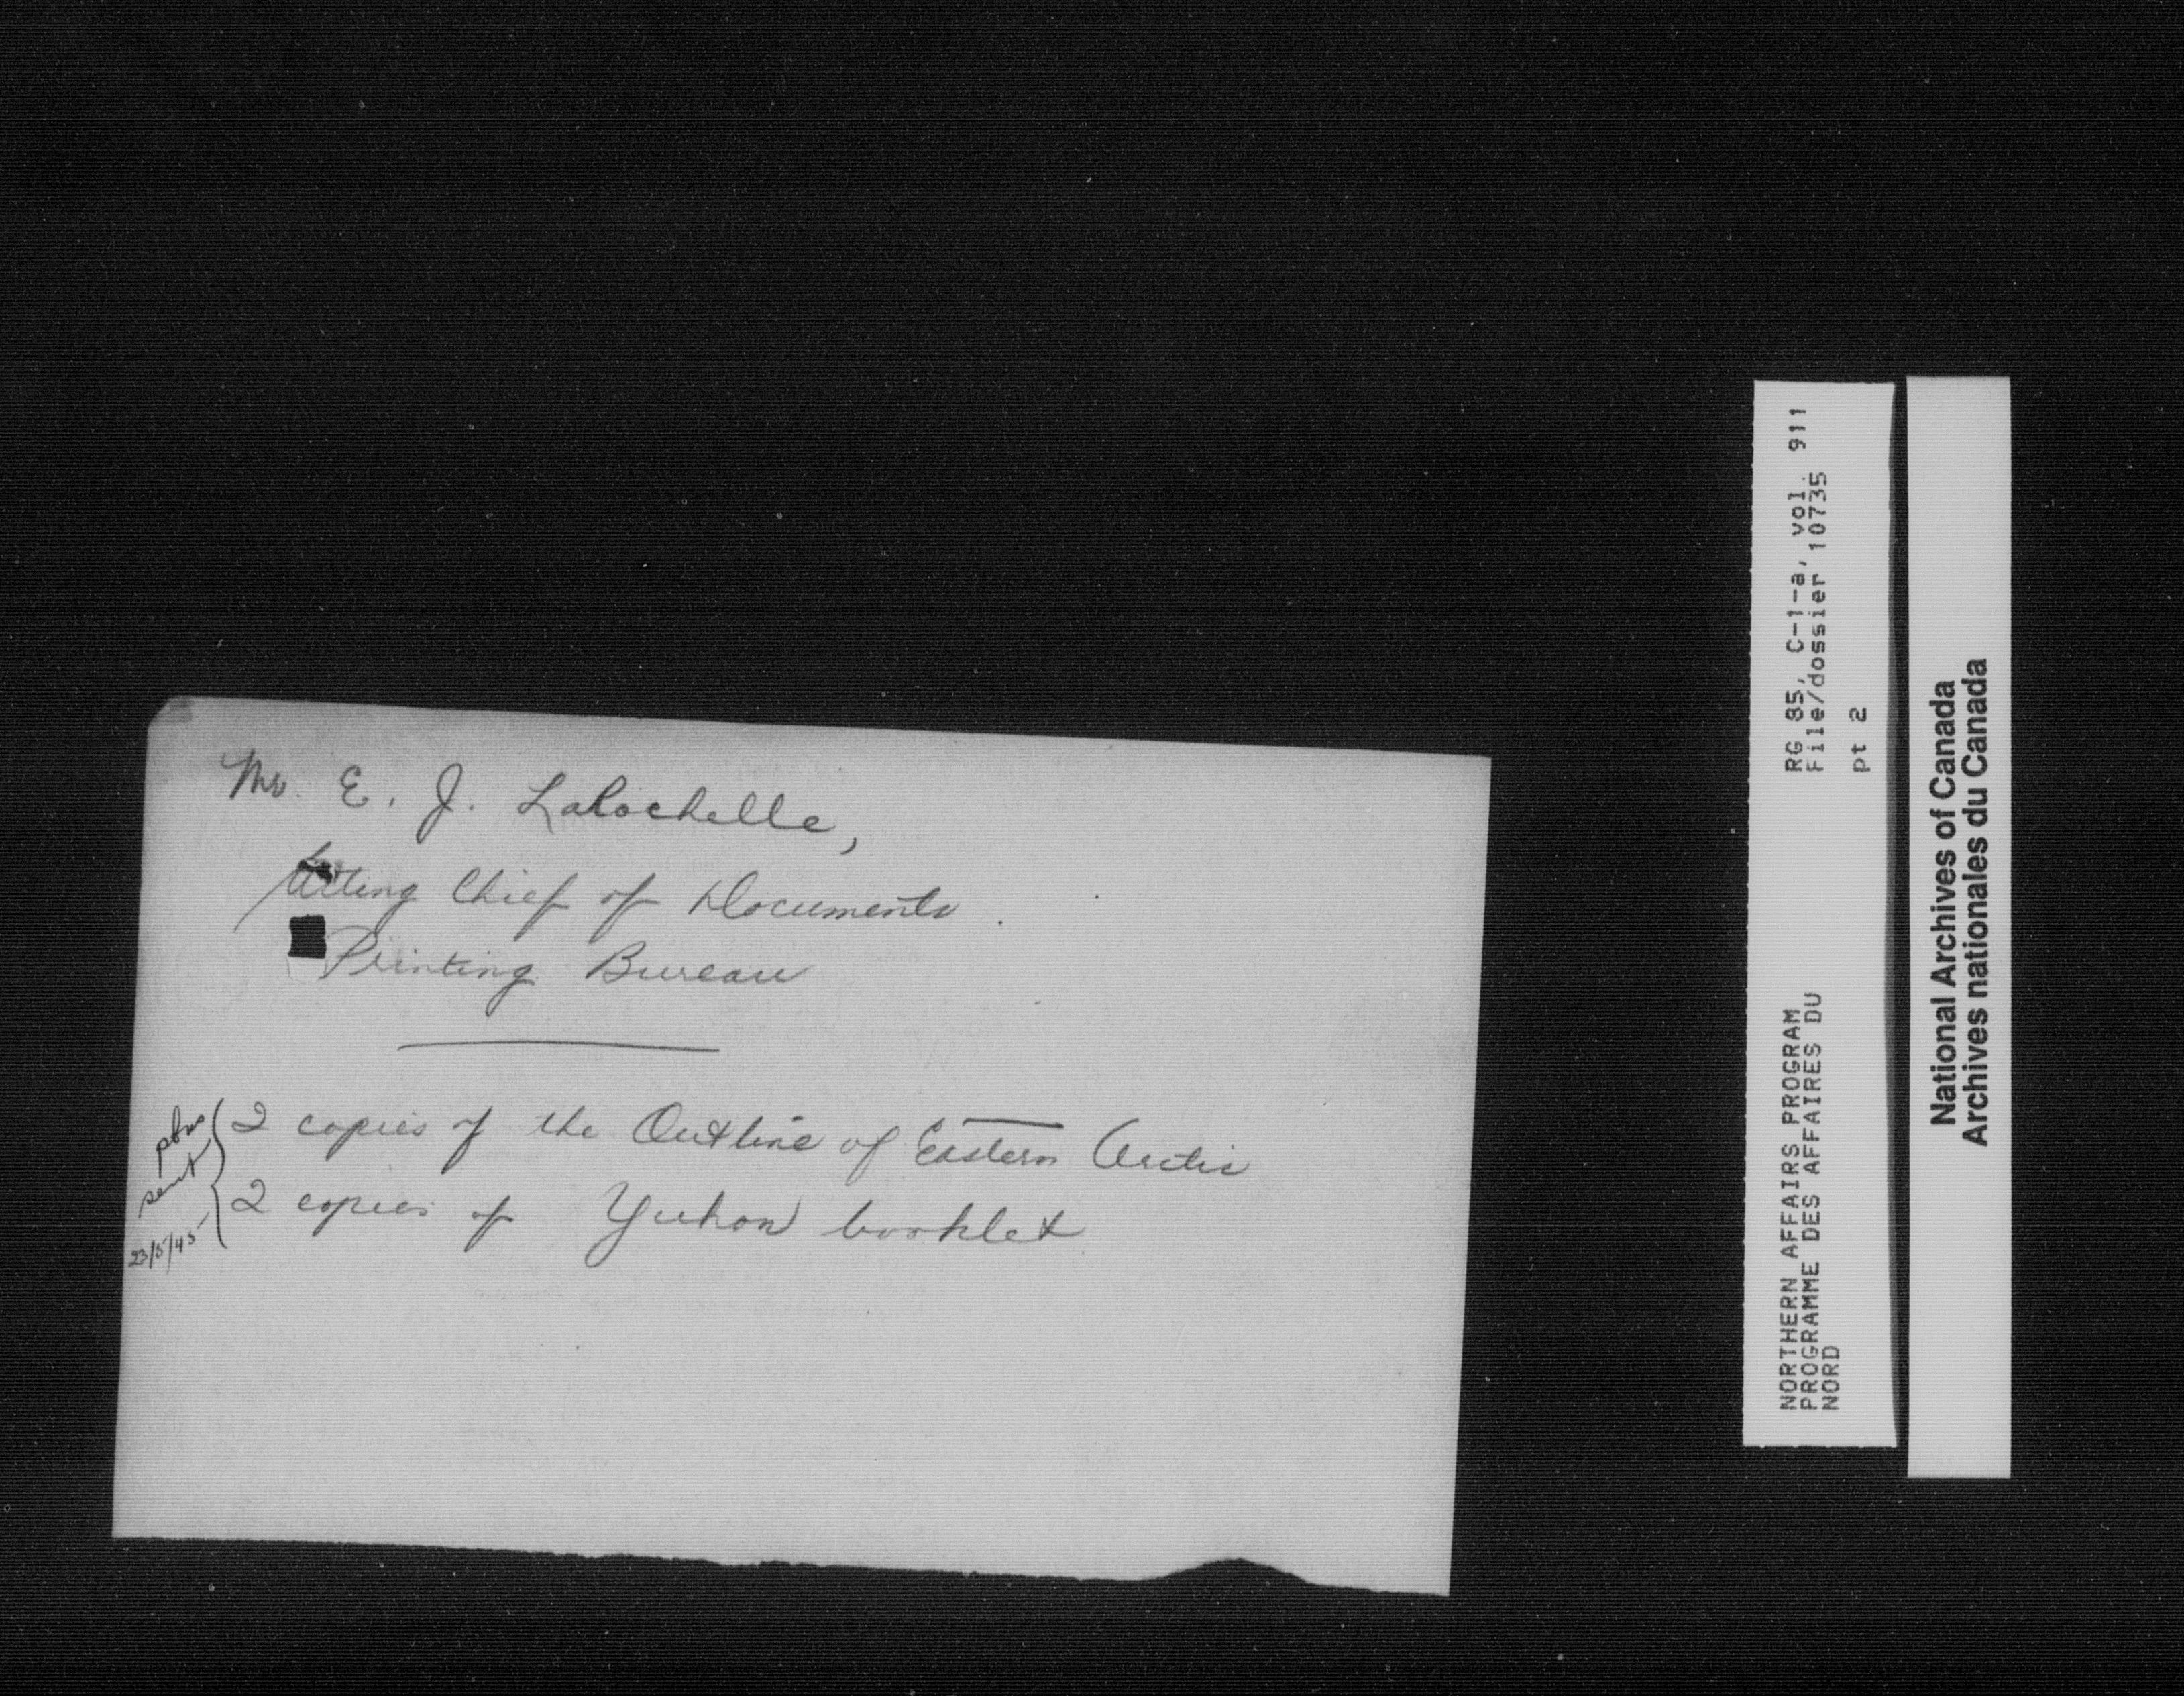 Mr. E. J. LaRochelle,
Acting Chief of Documents
Printing Bureau
2 copies of the Outline of Eastern Arctic
2 copies of Yukon booklet
sent
23/5/45
RG 85, C-1-a, vol. 911
File/dossier 10735
pt 2
NORTHERN AFFAIRS PROGRAM
PROGRAMME DES AFFAIRES DU
NORD
National Archives of Canada
Archives nationales du Canada